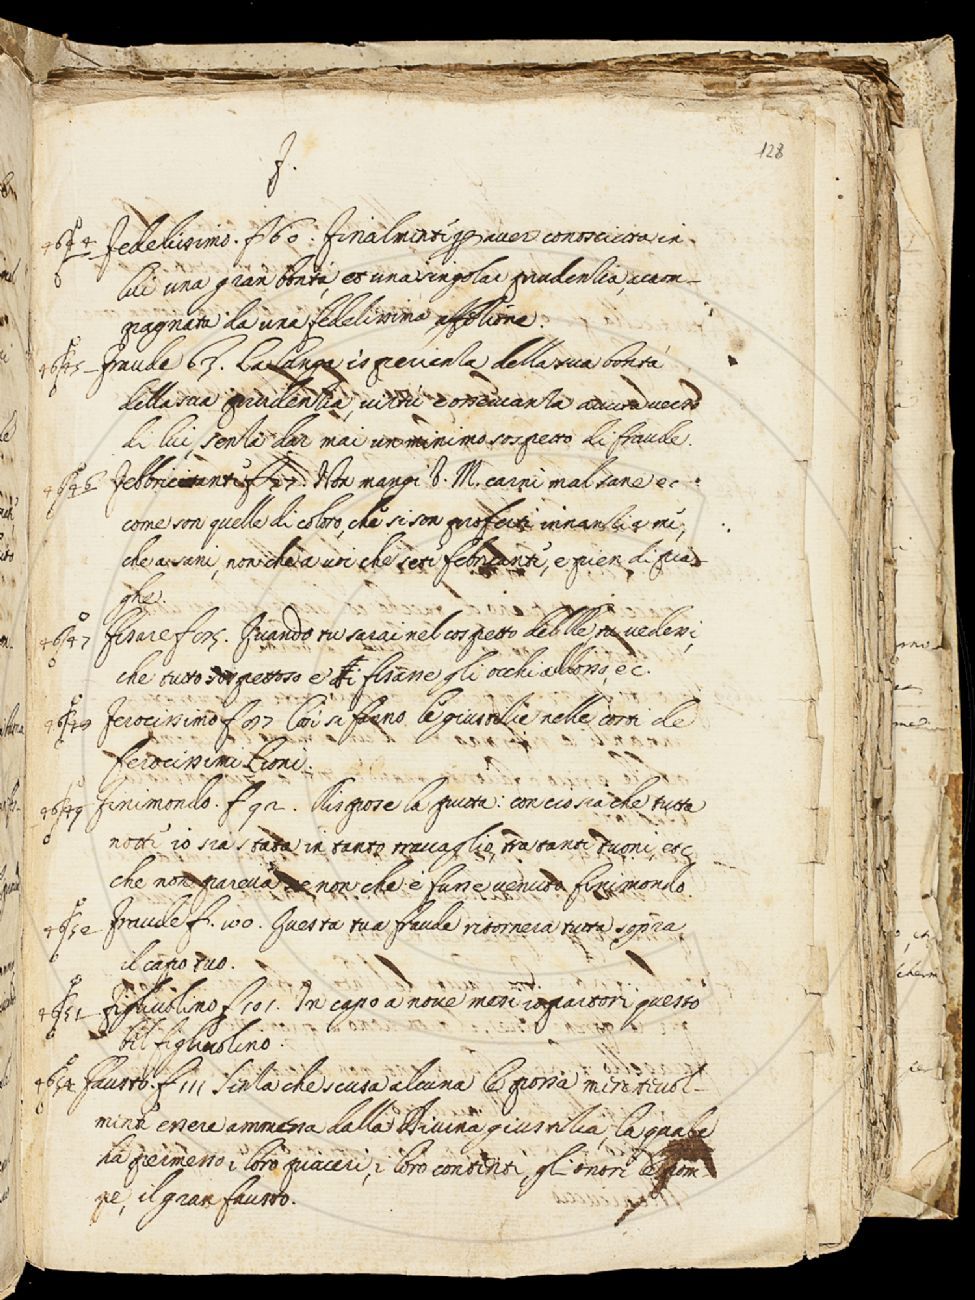 128
F.
4644 Fedelissimo. f 60. Finalmente per aver conosciuta in
lui una gran bontà, et una singolar prudentia, acom-
pagnata da una fedelissima affetione.
4645 Fraude 63. La lunga isperienta della sua bontà
della sua prudentia, virtù e osservanza avuta verso
di lui, senza dar mai un minimo sospetto di fraude.
4646 Febbricitante f 87. Non mangi V. M. carni mal sane ec
come son quelle di coloro, che si son proferti innanzi a me,
che a sani, non che a voi che sete febricante, e pien di pia-
ghe.
4647 Fisare f 95. Quando tu sarai nel cospetto del Re tu vederai,
che tutto sospettoso e ti fisarre gli occhi adosso, ec.
Ferocissimo f 97 Così si fanno le giustitie nelle corti de
ferocissimi Lioni.
4649 Finimondo. f 92. Rispose la putta: conciosia che tutta
notte io sia stata in tanto travaglio, tra tanti tuoni, etc
che non pareva se non che e fusse venuto finimondo.
Fraude f. 100. Questa tua fraude ritornera tutta sopra
il capo tuo.
4651 Figliuolino f 101. In capo a nove mesi partorì questo
bel figliuolino.
Fausto. f 111 Senza che scusa alcuna le possa
essere ammessa dalla Divina giustitia, la quale
ha permesso i loro piaceri, i loro contenti, gli onori le pom-
pe, il gran fausto.